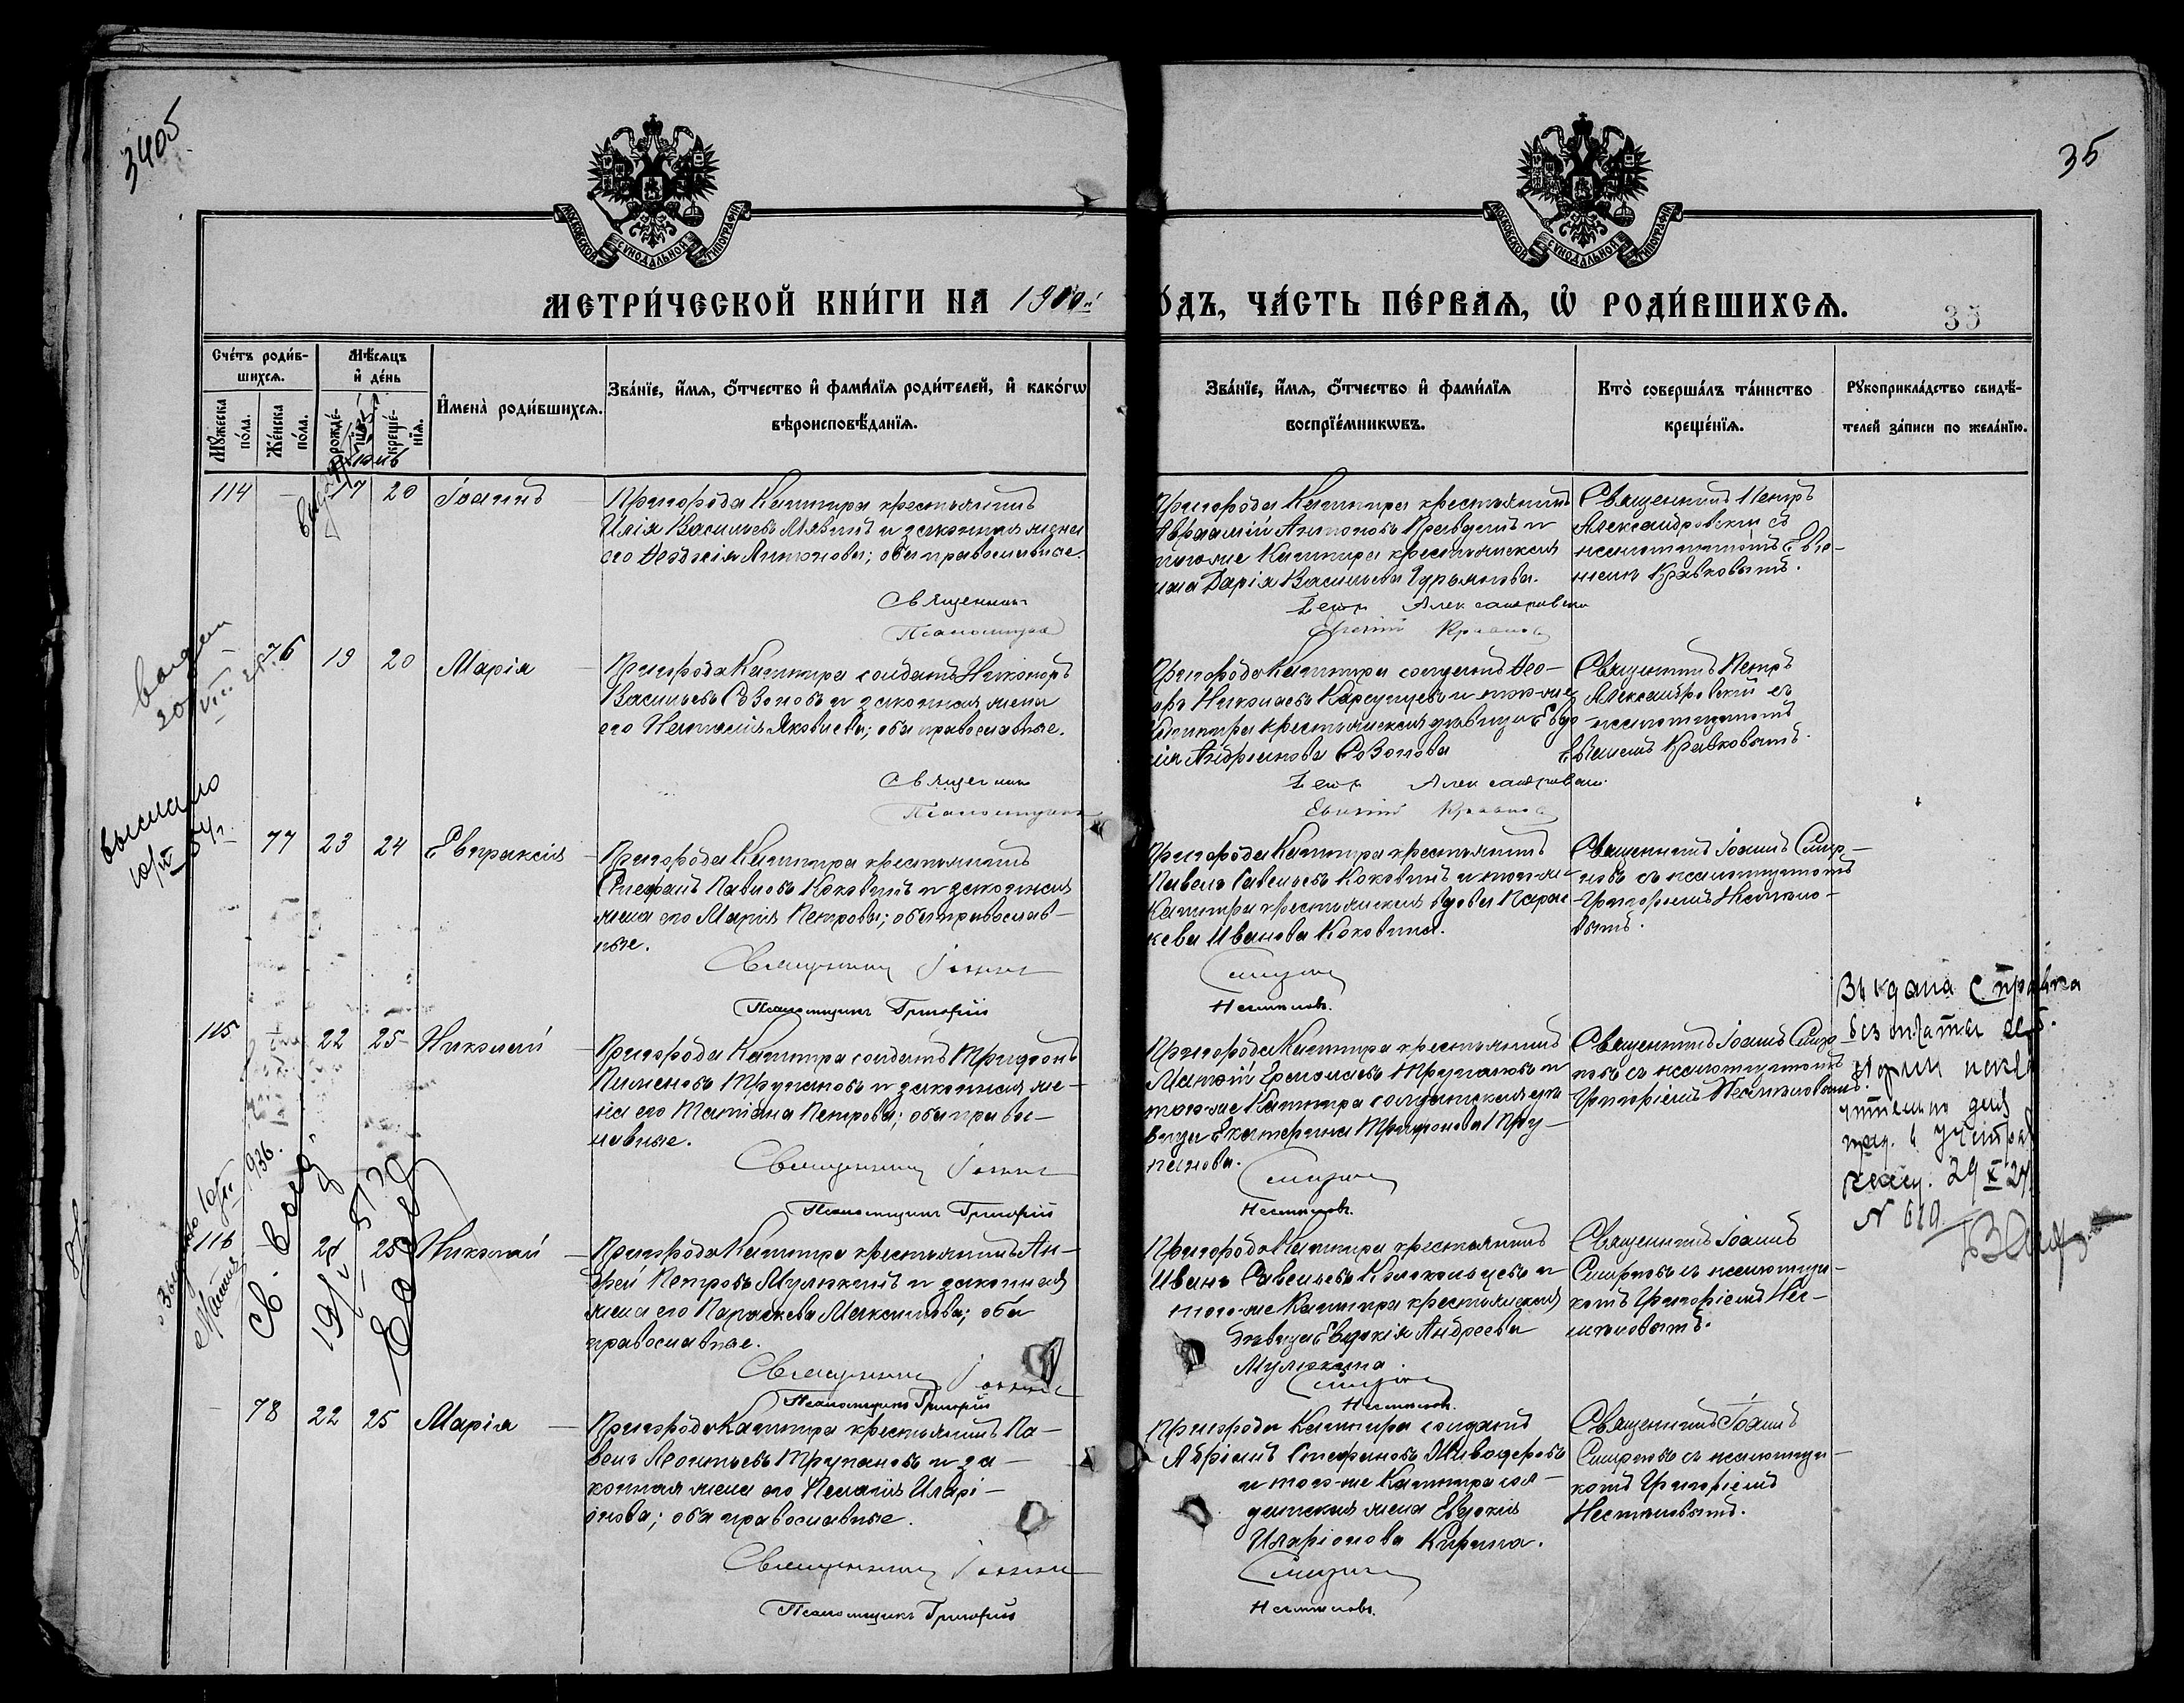 3405
35
МОСКОВСКОЙ СѴНОДАЛЬНОЙ ТИПОГРАФІИ
МОСКОВСКОЙ СѴНОДАЛЬНОЙ ТИПОГРАФІИ
МЕТРИ́ЧЕСКОЙ КНИ́ГИ НА 1900й
О́ДЪ, ЧА́СТЬ ПЕ́РВАЯ, Ѡ҆ РОДИ́ВШИХСЯ.
35
Сче́тъ роди́в-
шихся.
Мꙋ́жеска
по́ла.
Же́нска
по́ла.
Мѣ́сяцъ
и҆ де́нь
рожде́-
креще́-
нїя.
И҆мена̀ роди́вшихся.
Зва́нїе, и҆́мя, ѻ҆́тчество и҆ фами́лїя роди́телей, и҆ како́гѡ
вѣроисповѣ́данїя.
Зва́нїе, и҆́мя, ѻ҆́тчество и҆ фами́лїя
воспрїе́мникѡвъ.
Кто̀ соверша́лъ та́инство
креще́нїя.
Рꙋкоприкла́дство свидѣ́-
телей за́писи по жела́нїю.
114 — 17 20 Іоаннъ
Пригорода Каштира крестьянинъ
Илія Васильевъ и законная жена
его Антонова; оба православные.
Священник
Псаломщик
Пригорода Каштира крестьянинъ
Авраамій Антоновъ и
того-же Каштира крестьянская
жена Дарія Васильева Гурьянова.
Петр Александровский
Евгений Кравков
Священникъ Петръ
Александровскій съ
псаломщикомъ Евге-
ніемъ Кравковымъ.
76 19 20 Марія
Пригорода Каштира солдатъ Никаноръ
Васильевъ Созоновъ и законная жена
его Наталія Яковлева; оба православные.
Священник
Псаломщик
Пригорода Каштира солдатъ Ѳео-
оръ Николаевъ Карсунцевъ и того-же
Каштира крестьянская дѣвица Евдо-
кія Андріанова Созонова
Петр Александровский
Евгений Кравков
Священникъ Петръ
Александровскій съ
псаломщикомъ
Евгеніемъ Кравковымъ.
выслано
77 23 24 Евпраксія
Пригорода Каштира крестьянинъ
Стефанъ Павловъ Коковинъ и законная
жена его Марія Петрова; оба православ-
ные.
Священник Іоанн
Псаломщикъ Григорій
Пригорода Каштира крестьянинъ
Павелъ Савельевъ Коковинъ и того-же
Каштира крестьянская вдова Парас-
кева Иванова Коковина.
Смирнов
Несмѣловъ.
Священникъ Іоаннъ Смир-
новъ съ псаломщикомъ
Григоріемъ Несмѣло-
вымъ.
115 22 25 Николай
Пригорода Каштира солдатъ Трифонъ
Пименовъ Трупановъ и законная же-
на его Татіана Петрова; оба право-
славные.
Священник Іоанн
Псаломщикъ Григорій
Пригорода Каштира крестьянинъ
Матѳій Ермолаевъ Трупановъ и
того-же Каштира солдатская дѣ-
вица Екатерина Трифонова Тру-
панова.
Смирнов
Несмѣловъ.
Священникъ Іоаннъ Смир-
новъ съ псаломщикомъ
Григоріемъ Несмѣловымъ.
Выдана справка
без оплаты
29 X 27
N 619
116 — 25 Николай
Пригорода Каштира крестьянинъ Ан-
дрей Петровъ Мулюкинъ и законная
жена его Параскева Максимова; оба
православные.
Священник Іоанн
Псаломщикъ Григорій
Пригорода Каштира крестьянинъ
Иванъ Савельевъ Колокольцевъ и
того-же Каштира крестьянская
дѣвица Евдокія Андреева
Мулюкина.
Смирнов
Несмѣловъ.
Священникъ Іоаннъ
Смирновъ съ псаломщи-
комъ Григоріемъ Нес-
мѣловымъ.
— 78 22 25 Марія
Пригорода Каштира крестьянинъ Па-
велъ Леонтьевъ Трупановъ и за-
конная жена его Пелагія Иларі-
онова; оба православные.
Священник Іоанн
Псаломщикъ Григорій
Пригорода Каштира солдатъ
Адріанъ Стефановъ Живодеровъ
и того-же Каштира сол-
датская жена Евдокія
Иларіонова Кирина.
Смирнов
Несмѣловъ.
Священникъ Іоаннъ
Смирновъ съ псаломщи-
комъ Григоріемъ
Несмѣловымъ.